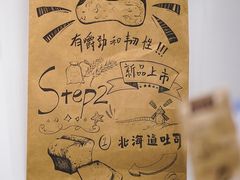 有嚼劲和韧性!!!
新品上市
Step2
① 北海道吐司